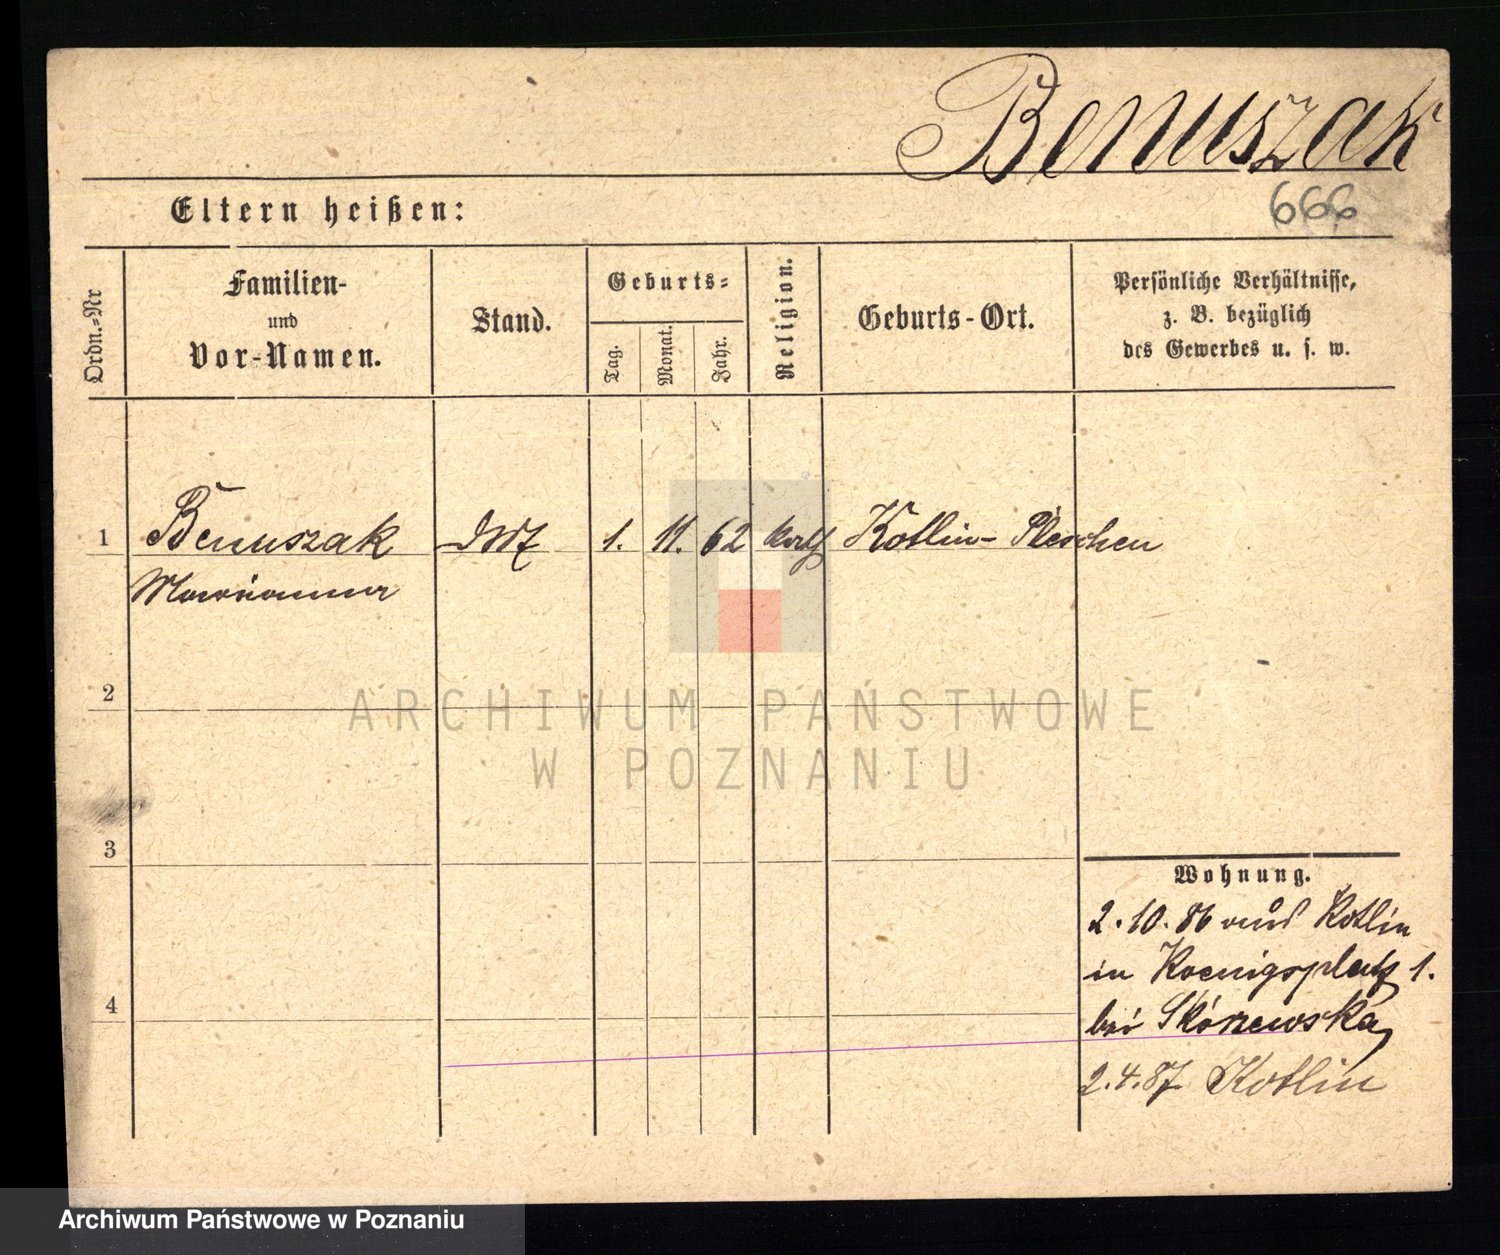 Benuszak
666
Eltern heißen:
Ordn.-Nr
Familien-
und
Vor-Namen.
Stand.
Geburts-
Tag.
Monat.
Jahr.
Religion.
Geburts-Ort.
Persönliche Verhältnisse,
z. B. bezüglich
des Gewerbes u. s. w.
1 Benuszak 1. 11. 62 kath Kotlin- Pleschen
Marianna
2
ARCHIWUM PAŃSTWOWE
W POZNANIU
3
Wohnung.
2.10.86 Kotlin
in Koenigsplatz 1.
4
bei Skórzewska
2.4.87 Kotlin
Archiwum Państwowe w Poznaniu